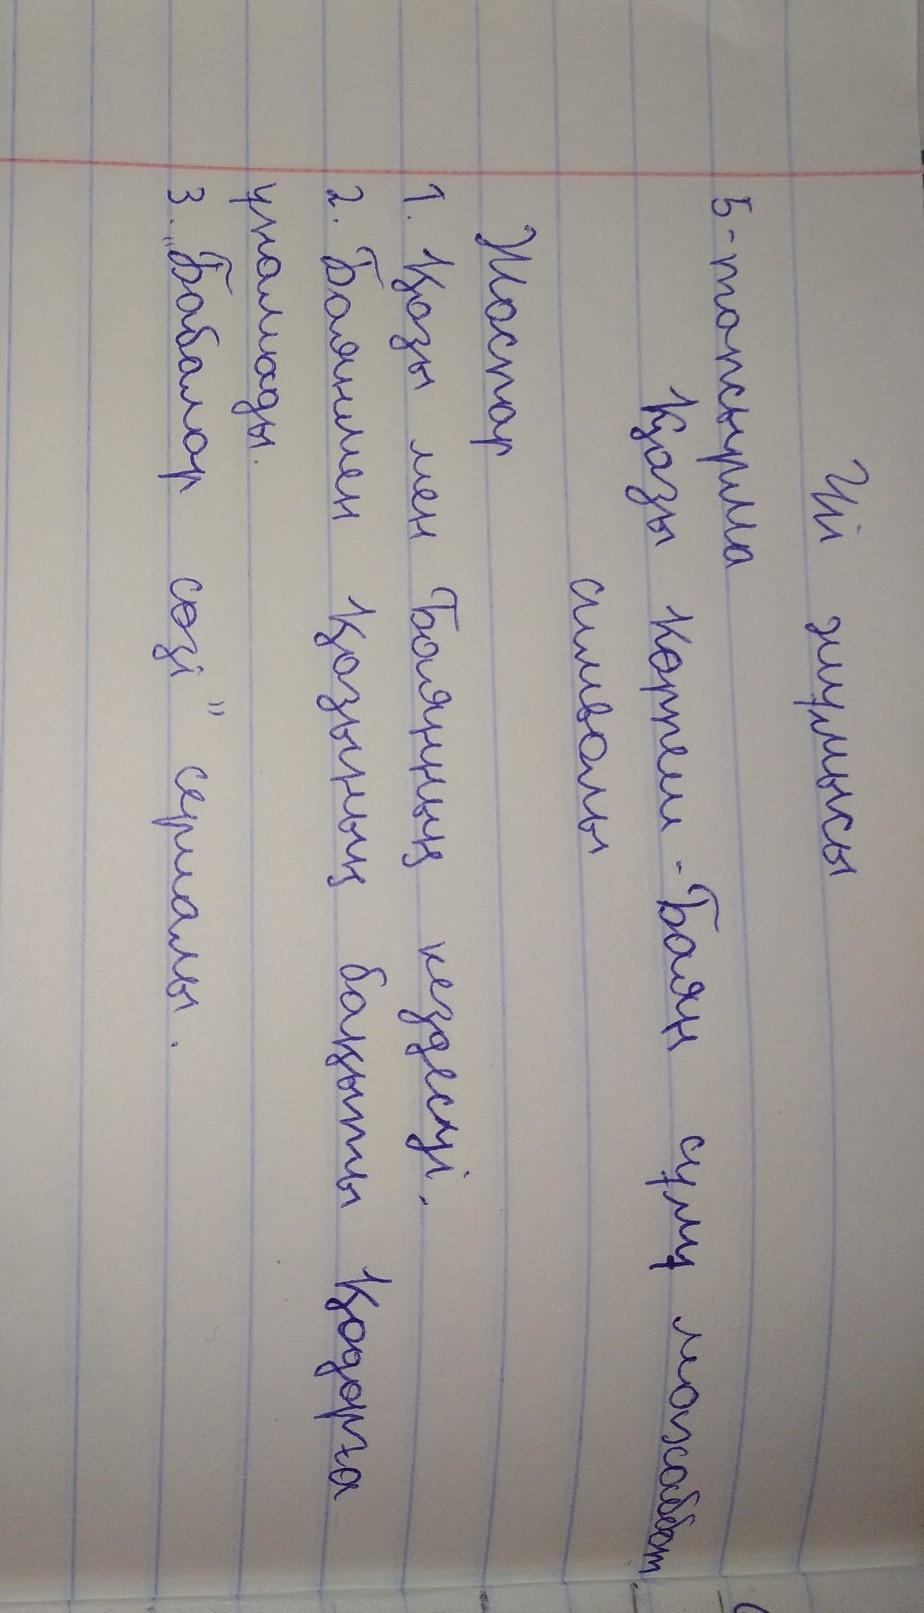 Үй жұмысы
5-тапсырма
Қазы Көрпеш-Баян сұлу махаббат
символы
Жоспар
1. Қозы мен Баянның кездесуі.
2. Баянмен Қозының бақыты Қодарға
ұнамады.
3. „Бабалар сөзі" сермалы.